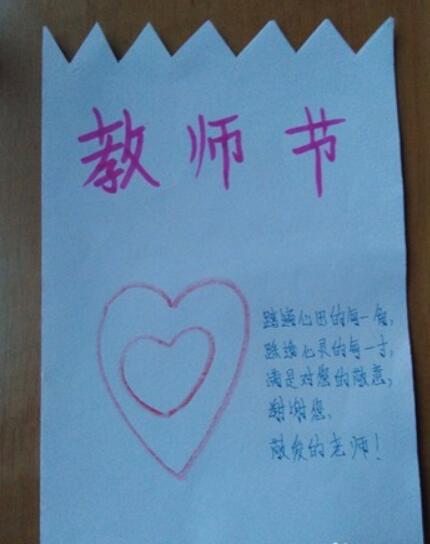 教师节
踏遍心田的每一角,
踩透心灵的每一寸,
满是对您的敬意,
谢谢您,
敬爱的老师!